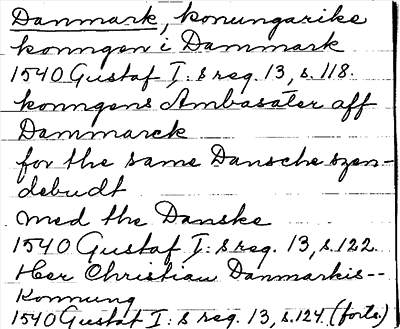 Danmark, konungarike
konngen i Dammark
1540 Gustaf I:s reg. 13, s. 118.
konngens Ambasáter aff
Dammarck
for the same Dansche szen-
debudt
med the Danske
1540 Gustaf I:s reg. 13, s. 122
Her Christian Danmarkis--
Konnung
1540 Gustaf I:s reg. 13, s. 124 (forts.)